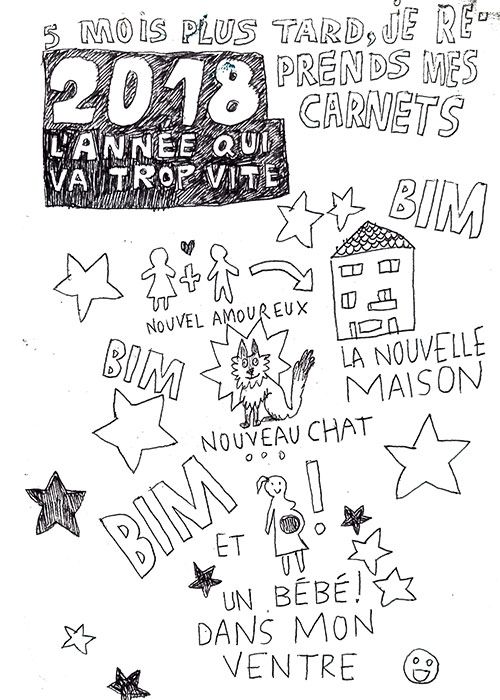 5 MOIS PLUS TARD, JE RE-
PRENDS MES
CARNETS
2018
L'ANNÉE QUI
VA TROP VITE
BIM
NOUVEL AMOUREUX
LA NOUVELLE
MAISON
BIM
NOUVEAU CHAT
...
BIM
ET
!
UN BÉBÉ!
DANS MON
VENTRE